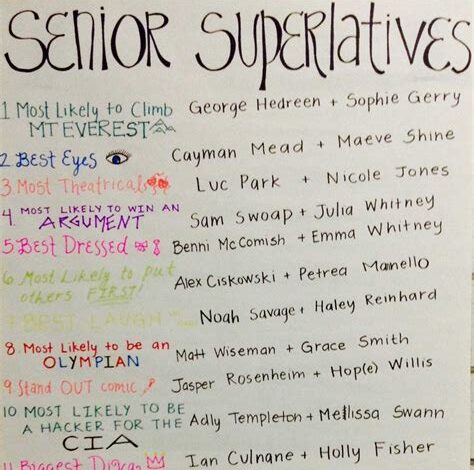 SENIOR SUPERlATiVES
1 Most Likely to Climb George Hedreen + Sophie Gerry
MT EVEREST
2 BEST EYES Cayman Mead + Maeve Shine
3 Most Theatrical Luc Park + Nicole Jones
4 MOST LIKELY TO WIN AN Sam Swoap + Julia Whitney
ARGUMENT
5 Best Dressed Benni McComish + Emma Whitney
6 Most Likely to put Alex Ciskowski + Petrea Mamello
others FIRST!
7 BEST LAUGH Noah Savage + Haley Reinhard
8 Most Likely to be an Matt Wiseman + Grace Smith
OLYMPIAN
9 Stand OUT comic Jasper Rosenheim + Hop(e) Willis
10 MOST LIKELY TO BE Adly Templeton + Mellissa Swann
A HACKER FOR THE
CIA
11 Biggest Ian Culnane + Holly Fisher